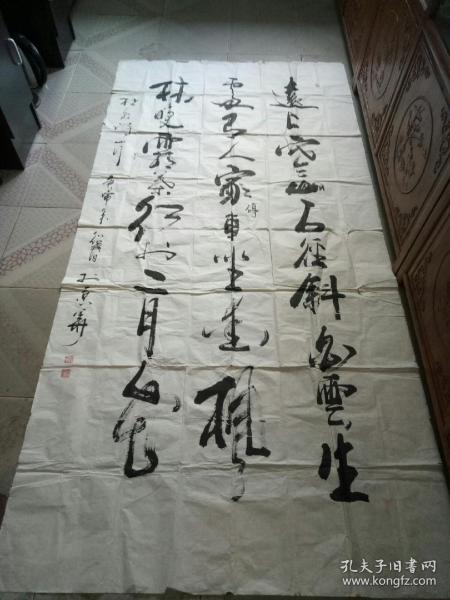 遠上寒山石徑斜白雲生
處有人家停車坐愛楓
林晚霜葉紅於二月花
杜牧
孔夫子旧书网
www.kongfz.com